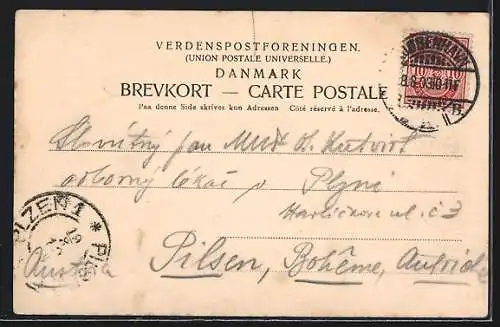 VERDENSPOSTFORENINGEN.
(UNION POSTALE UNIVERSELLE.)
DANMARK
BREVKORT — CARTE POSTALE
Paa denne Side skrives kun Adressen Côté réservé à l'adresse.
KJØBENHAVN
10 10
8.8.03
B.
Slovutný pan MUDr
odborný lékař v Plzni
Havlíčkova ul. č 3
PLZEŇ 1 *
Austria Pilsen, Bohême, Autriche